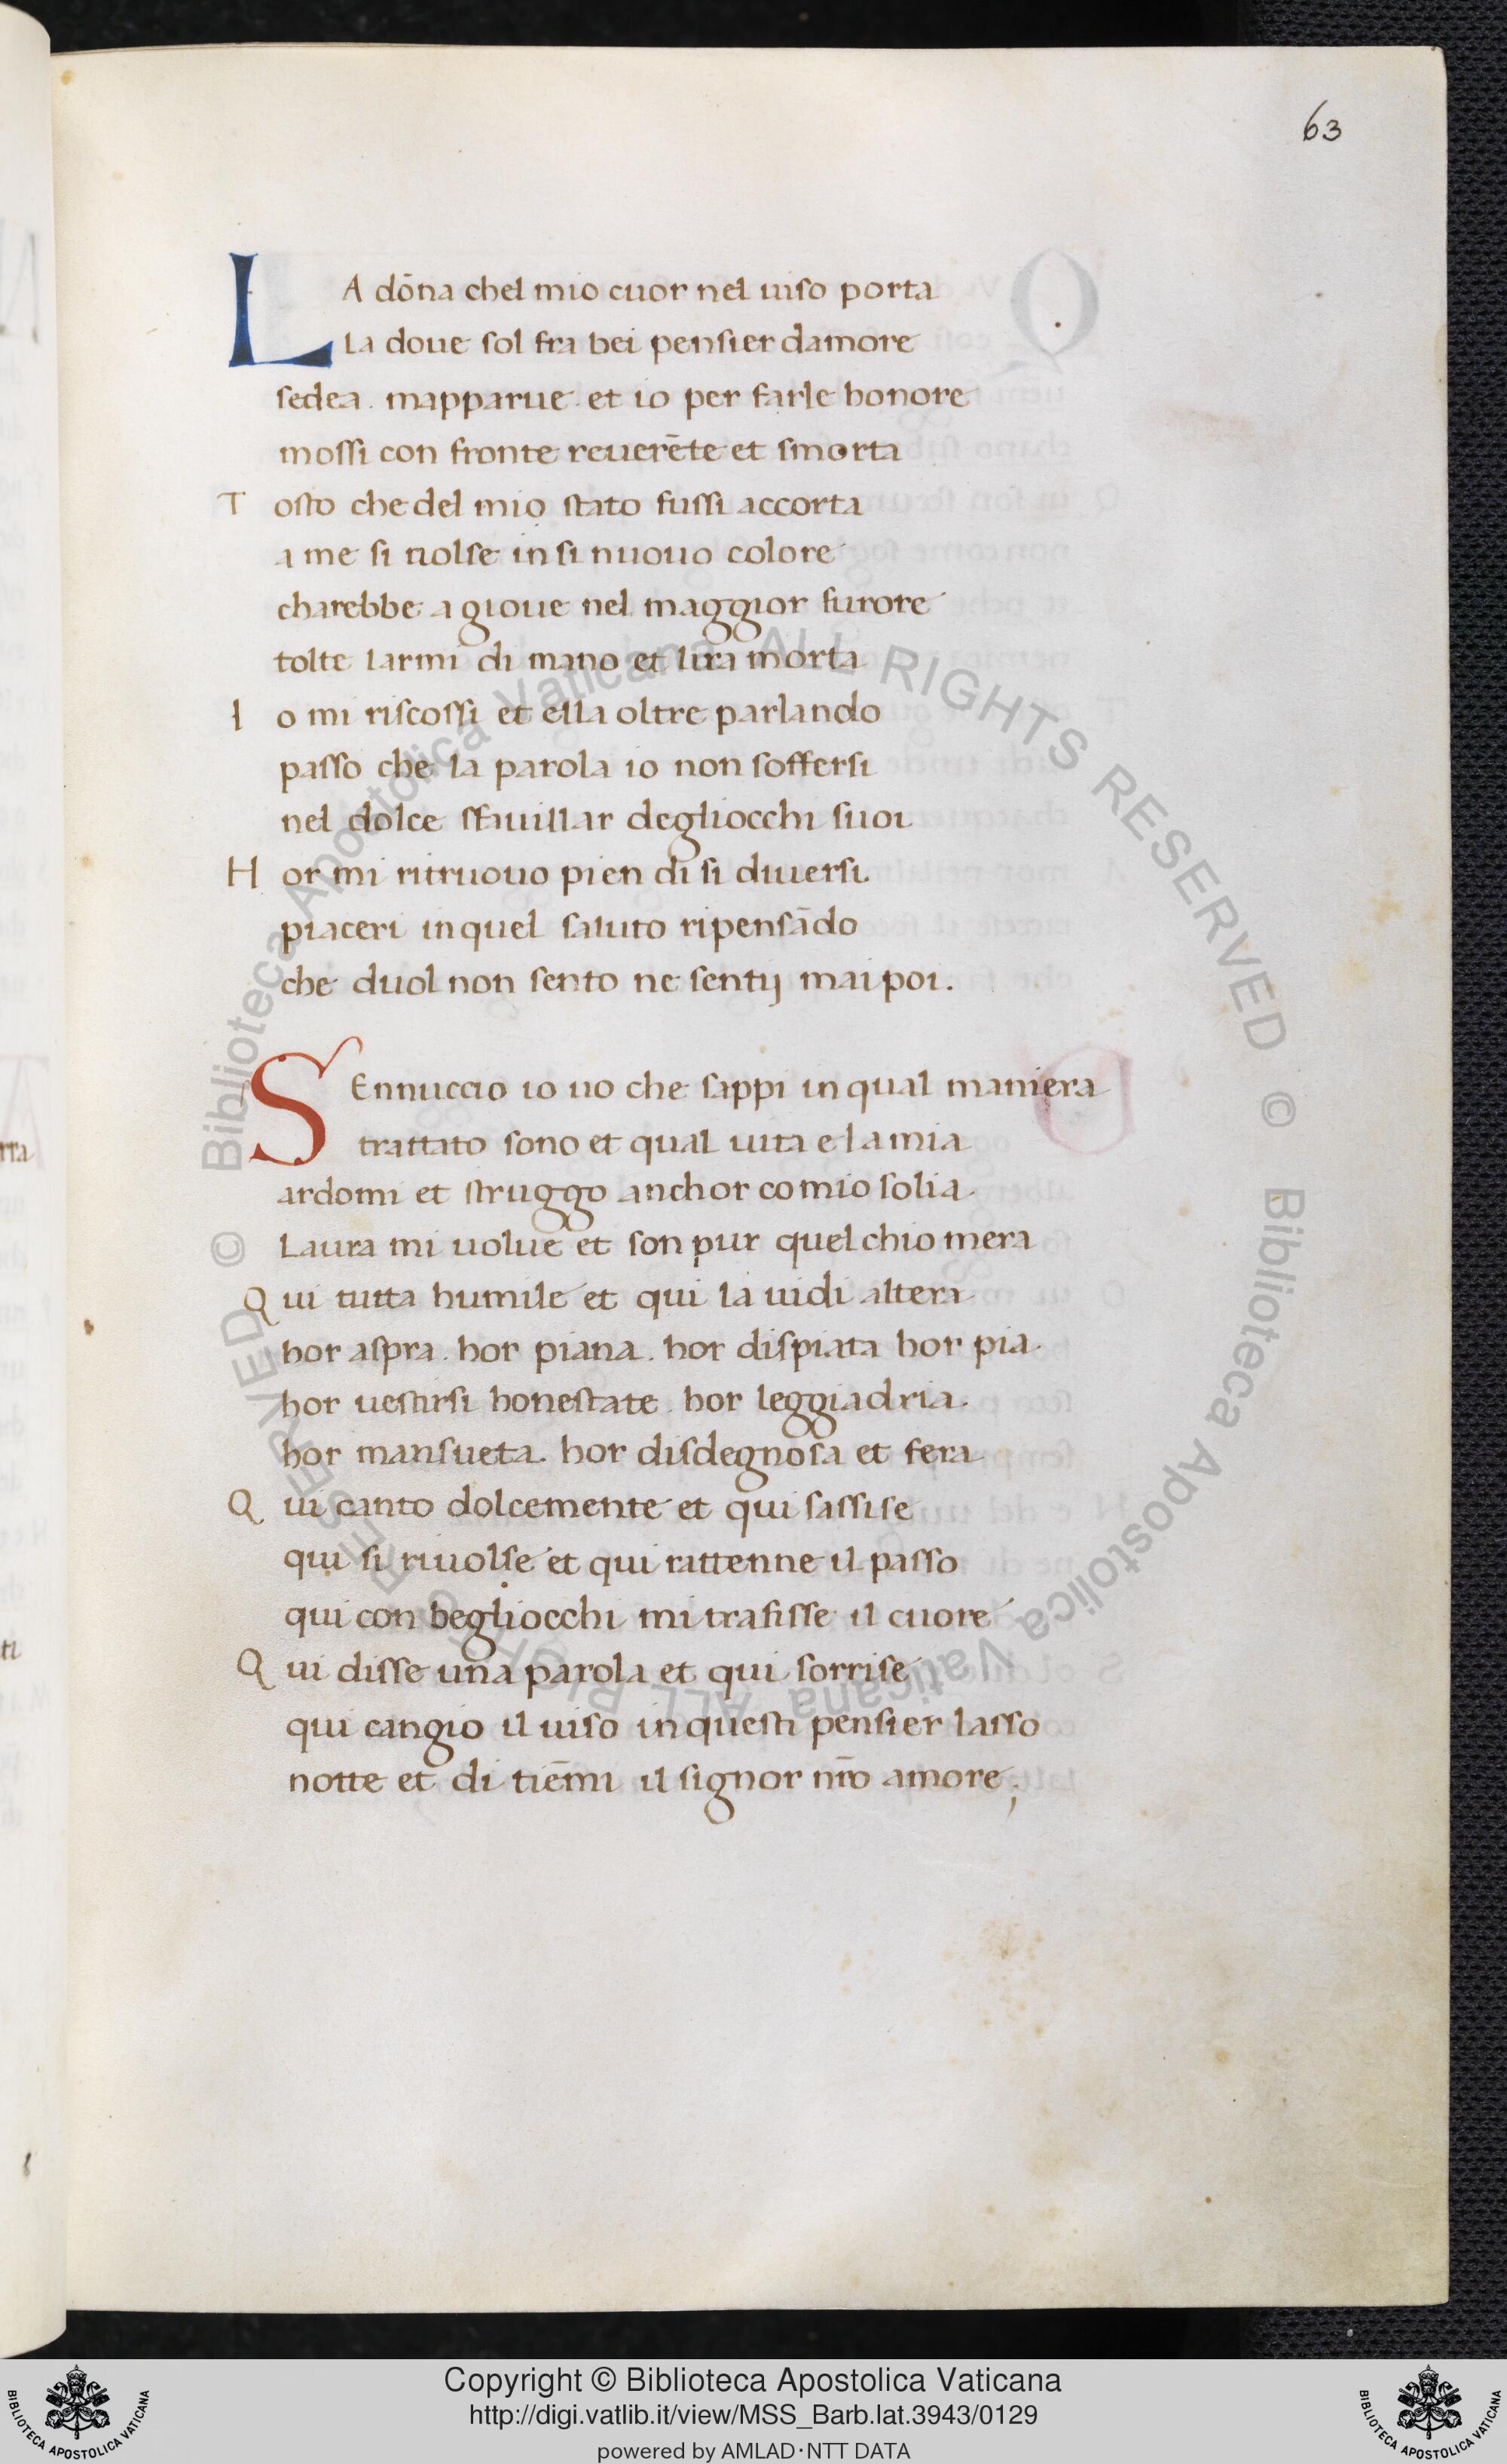 63
LA dōna chel mio cuor nel uiso porta
La doue sol fra bei pensier damore
sedea. mapparue. et io per farle honore
mossi con fronte reuerēte et smorta
Tosto che del mio stato fussi accorta
a me si uolse in si nuouo colore
charebbe a gioue nel maggior furore
tolte larmi di mano et lira morta.
Io mi riscossi et ella oltre parlando
passo che la parola io non soffersi
nel dolce sfauillar degliocchi suoi
Hor mi ritruouo pien di si diuersi.
piaceri in quel saluto ripensādo
che duol non sento ne sentij mai poi.
SEnnuccio io uo che sappi in qual maniera
trattato sono et qual uita e la mia
ardomi et struggo anchor comio solia.
Laura mi uolue et son pur quel chio mera
Qui tutta humile et qui la uidi altera
hor aspra. hor piana. hor dispiata hor pia.
hor uestirsi honestate. hor leggiadria.
hor mansueta. hor disdegnosa et fera
Qui canto dolcemente et qui sassise
qui si riuolse et qui rattenne il passo
qui con begliocchi mi trafisse il cuore
Qui disse una parola et qui sorrise
qui cangio il uiso in questi pensier lasso
notte et di tiēmi il signor nr̄o amore;
rra
ti
© Biblioteca Apostolica Vaticana ALL RIGHTS RESERVED © Biblioteca Apostolica Vaticana ALL RIGHTS RESERVED
Copyright © Biblioteca Apostolica Vaticana
http://digi.vatlib.it/view/MSS_Barb.lat.3943/0129
powered by AMLAD·NTT DATA
BIBLIOTECA APOSTOLICA VATICANA
BIBLIOTECA APOSTOLICA VATICANA